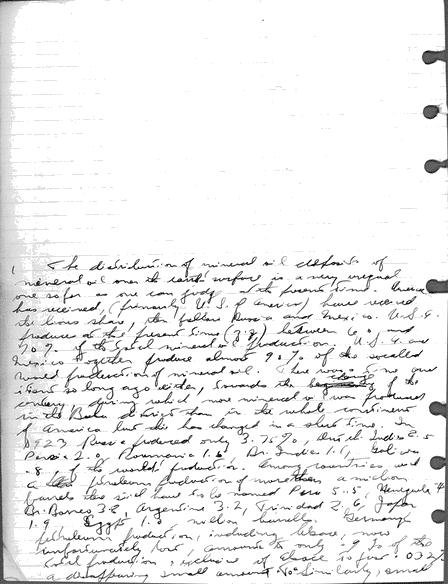 The distribution of mineral oil deposits of
mineral oil over the earth surface is a very unequal
one so far as one can judge at the present time.
has received, (primarily U.S. of America) have received
the lions share, then follow Russia and Mexico. U.S.A.
produces at the present time (1923) between 60 and
70% of the total mineral oil production. U.S.A. and
Mexico together produce almost 90% of the so called
world production of mineral oil. There was a time and
it isnt so long ago either, towards the of the
century during which more mineral oil was produced
in the Baku district than in the whole continent
of America but this has changed in a short time. In
1923 Russia produced only 3.75%, Dutch Indies
Persia 2.0, Roumania 1.5, Br. Indies 1.1, Galicia
.8 of the world production. Among countries with
a petroleum production of more than a million
barrels there still have to be named Peru 5.5, Venezuela 4
Br. Borneo 3.2, Argentine 3.2, Trinidad 2.6, Japan
1.9, Egypt 1.0 million barrels. Germany
petroleum production, including now
unfortunately lost, amounts to only % of the
total production, exclusive of so far .032%
a disappearing small amount. Similarly small